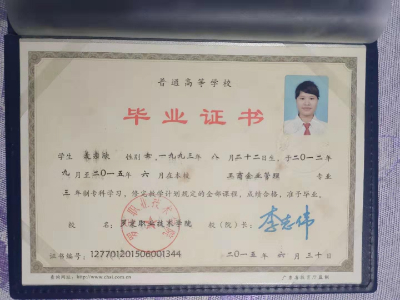 普通高等学校
毕业证书
学生 性别 女，一九九三年 八 月二十二日生，于二〇一二年
九 月至二〇一五年 六 月在本校 工商企业管理 专业
三 年制专科学习，修完教学计划规定的全部课程，成绩合格，准予毕业。
校 名： 职业技术学院 校（院）长： 李志伟
证书编号： 127701201506001344 二〇一五年 六 月三十日
查询网址：http://www.chsi.com.cn 广东省教育厅监制